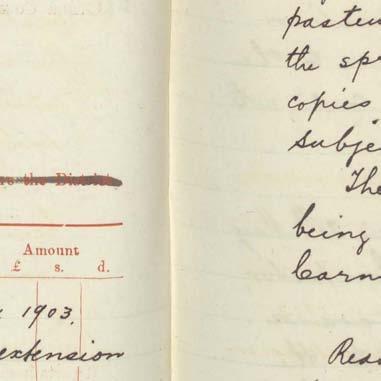 the District
Amount
£ s. d.
1903.
extension
the
copies
subje
The
being
Carn